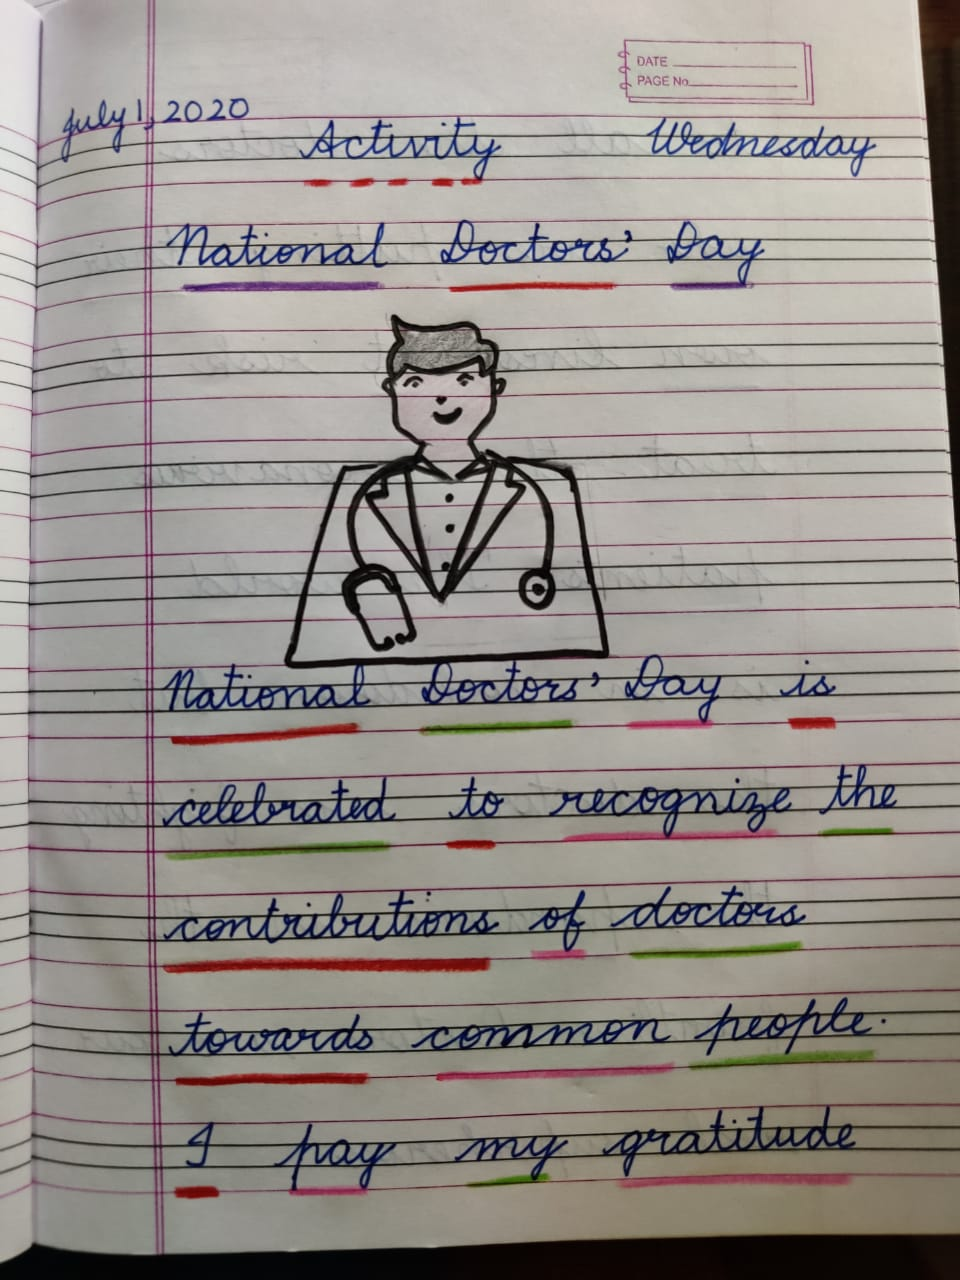 DATE
PAGE No.
July 1, 2020
Activity Wednesday
National Doctors' Day
National Doctors' Day is
celebrated to recognize the
contributions of doctors
towards common people.
I pay my gratitude